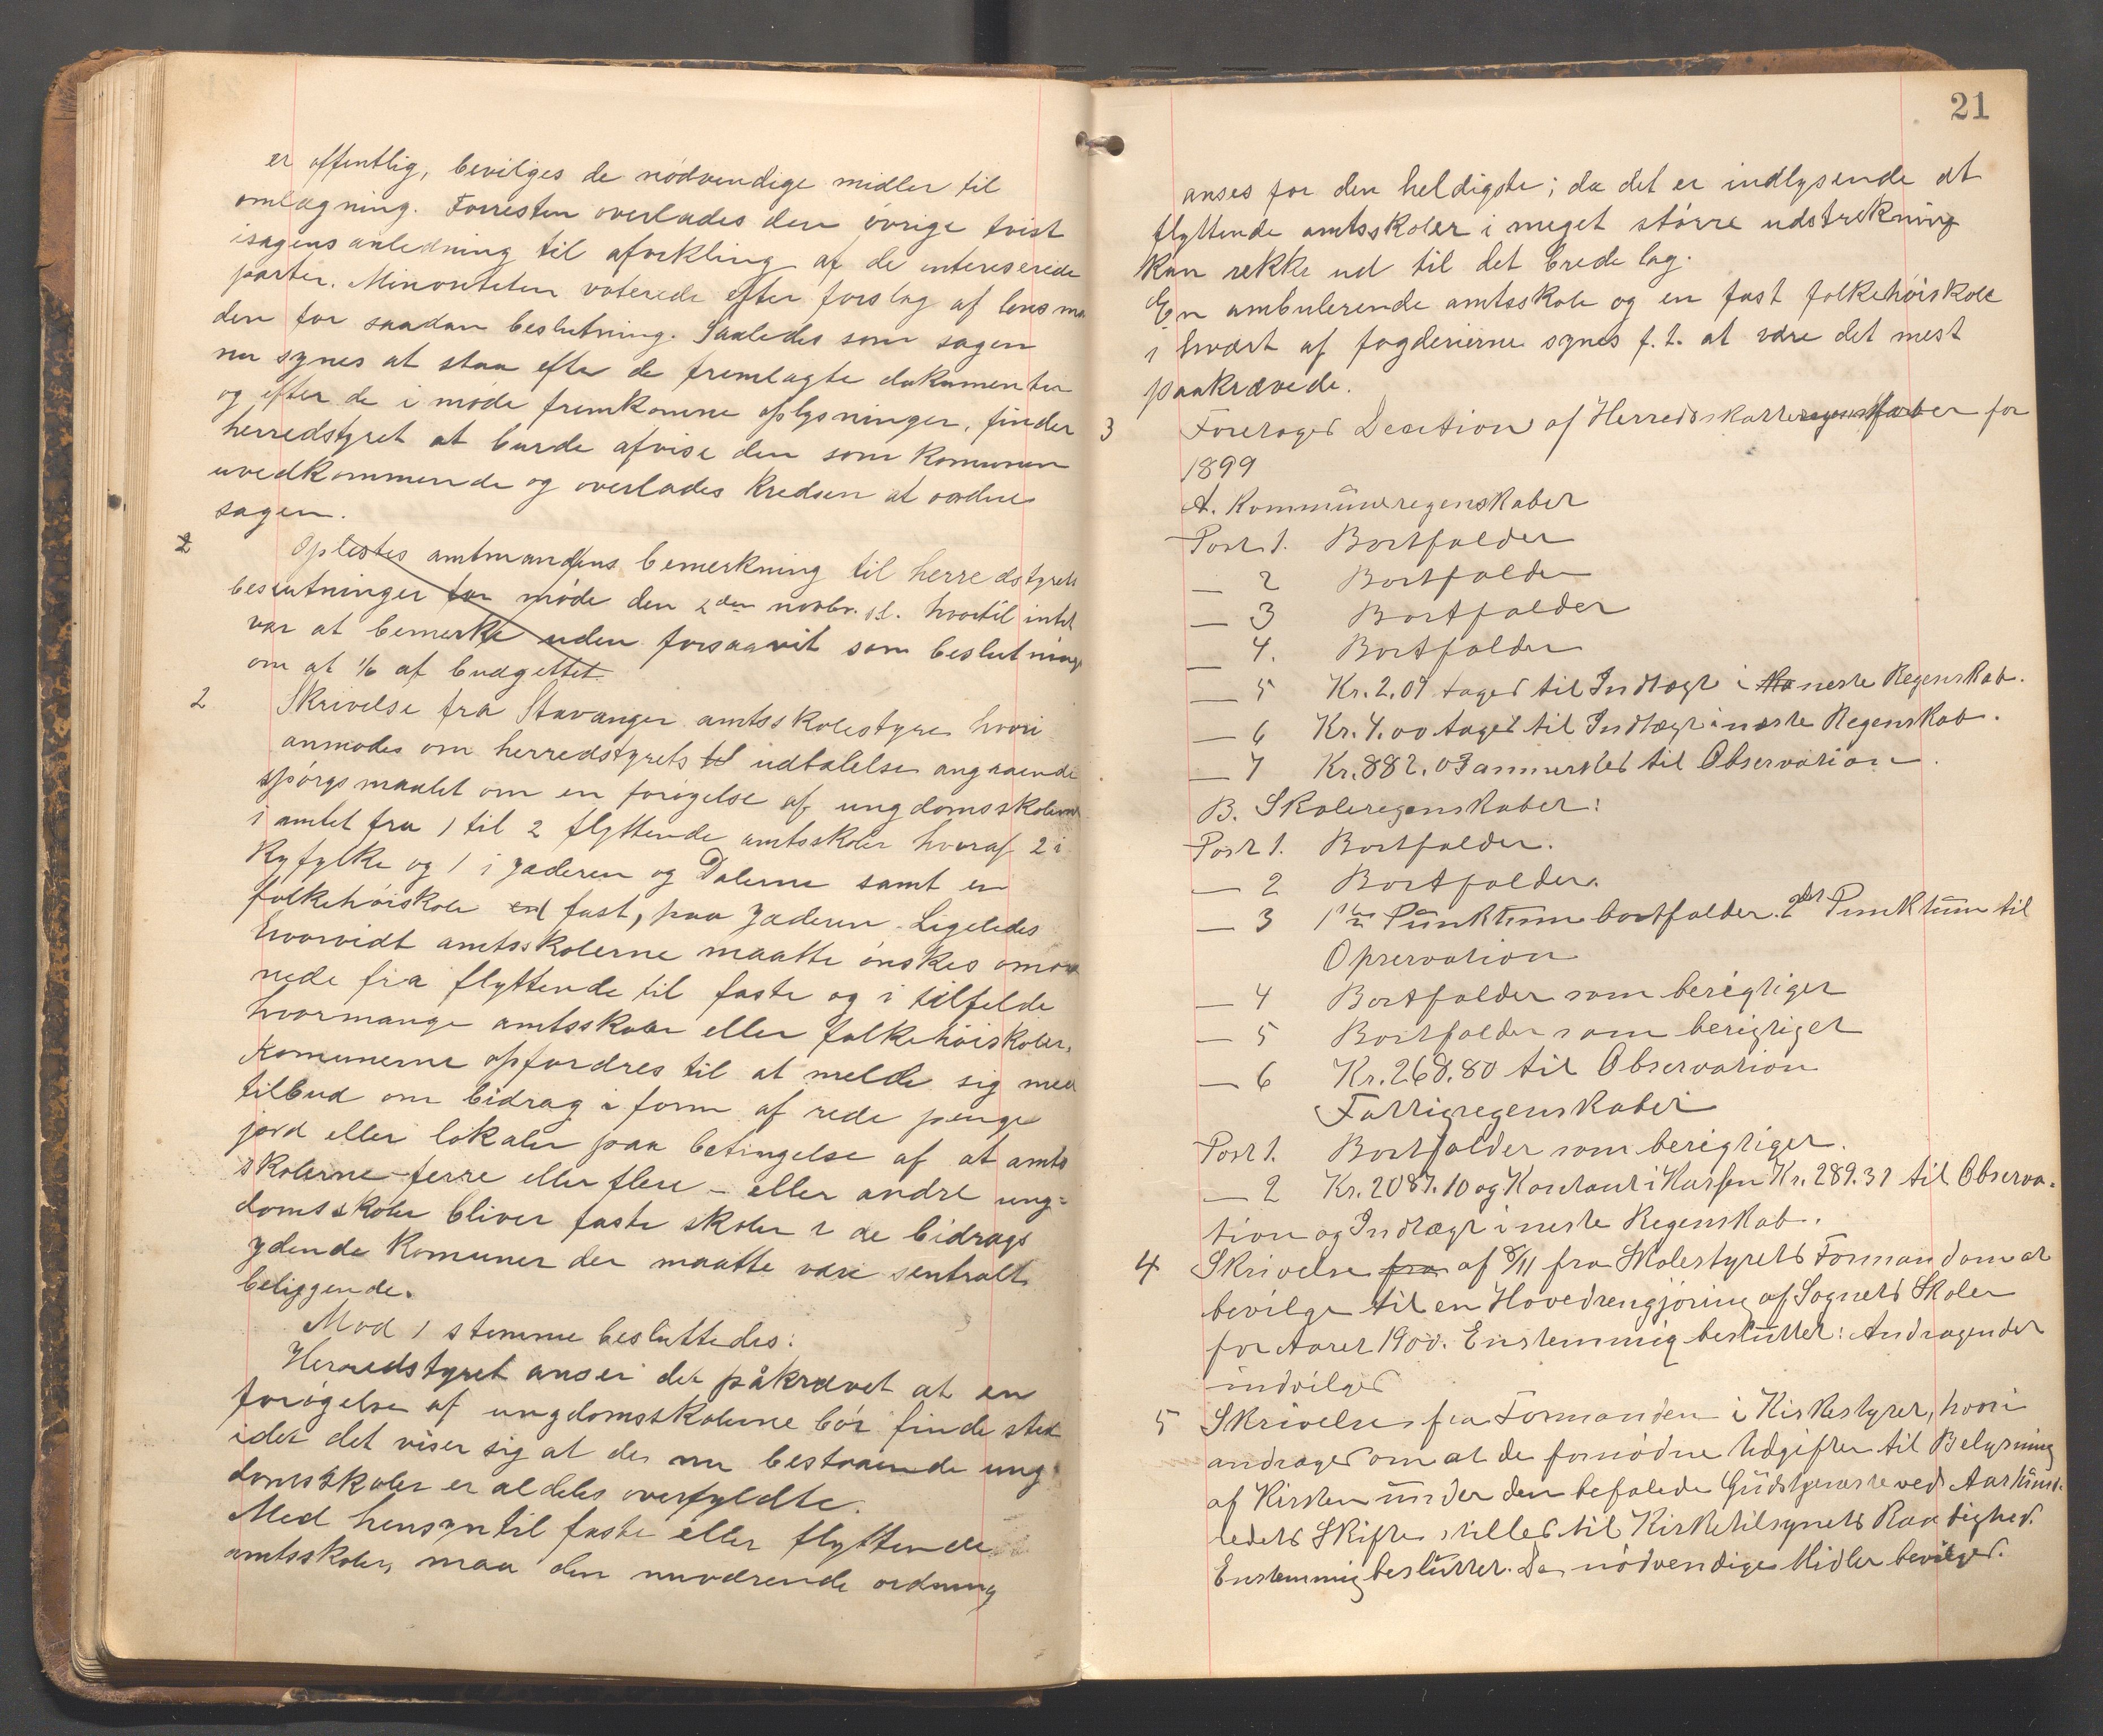 er offentlig, bevilges de nödvendige midler til
omlægning. Forresten overlades den övrige tvist
isagens anledning til afvikling af de intereserede
parter. Minoriteten voterede efter forslag af lensman
den for saadan beslutning. Saaledes som sagen
nu synes at staa efter de fremlagte dokumenter
og efter de i möde fremkomne oplysninger, finder
herredstyret at burde afvise den som komunen
uvedkommende og overlades Kredsen at ordne
sagen.
2 Oplæstes amtmandens bemerkning til herredstyrets
beslutninger for möde den 2den novbr. d.l. hvortil intet
var at bemerke uden forsaavit som beslutning
om at 1/6 af budgettet.
2 Skrivelse fra Stavanger amtsskolestyre hvori
anmodes om herredstyrets til udtalelse angaaende
spörgsmaalet om en forögelse af ungdomsskolerne
i amtet fra 1 til 2 flyttende amtsskoler hvoraf 2 i
Ryfylke og 1 i Jæderen og Dalerne samt en
folkehöiskole end fast, paa Jæderen. Ligeledes
hvorvidt amtsskolerne maatte önskes omord
nede fra flyttende til faste og i tilfelde
hvormange amtsskoler eller folkehöiskoler.
Komunerne opfordres til at melde sig med
tilbud om bidrag i form af rede penge
jord eller lokaler paa betingelse af at amts
skolerne – ferre eller flere – eller andre ung=
domsskoler bliver faste skoler i de bidrags
ydende Komuner der maatte være sentralt
beliggende.
Mod 1 stemme besluttedes:
Herredstyret anser det påkrævet at en
forögelse af ungdomsskolerne bör finde sted
idet det viser sig at de nu bestaaende ung
domsskoler er aldeles overfyldte.
Med hensyn til faste eller flyttende
amtsskoler, maa den nuværende ordning
21
anses for den heldigste; da det er indlysende at
flyttende amtsskoler i meget större udstrekning
kan rekke ud til det brede lag.
En ambulerende amtsskole og en fast folkehöiskole
i hvært af fogderierne synes f.t. at være det mest
paakrævede.
3 Foretoges Decition af Herredskasseregenskaber for
1899
A. Kommuneregenskaber
Post 1. Bortfalder
— 2 Bortfalder
— 3 Bortfalder
— 4. Bortfalder
— 5 Kr. 2.09 tages til Indtægt i neste Regenskab.
— 6 Kr. 4.00 tages til Indtægt i neste Regenskab.
— 7 Kr. 882.03 anmerkes til Observation.
B. Skoleregenskaber:
Post 1. Bortfalder.
— 2 Bortfalder.
— 3 1ste Punktum bortfalder. 2det Punktum til
Opservation
— 4 Bortfalder som berigtiget
— 5 Bortfalder som berigtiget
— 6 Kr. 268.80 til Observation
Fattigregenskaber
Post 1. Bortfalder som berigtiget.
— 2 Kr. 2087.10 og Kontant i Kassen Kr. 289.31 til Observa-
tion og Indtægt i neste Regenskab.
4 Skrivelse fra af 8/11 fra Skolestyrets Formand om at
bevilge til en Hovedrengjöring af Sognets Skoler
for Aaret 1900. Enstemmig besluttet: Andragendet
indvilges
5 Skrivelse fra Formanden i Kirkestyret, hvori
andrages om at de fornödne Udgifter til Belysning
af Kirken under den befalede Gudstjeneste ved Aarhund-
redets Skifte stilles til Kirketilsynets Raadighed.
Enstemmig besluttet. De nödvendige Midler bevilges.